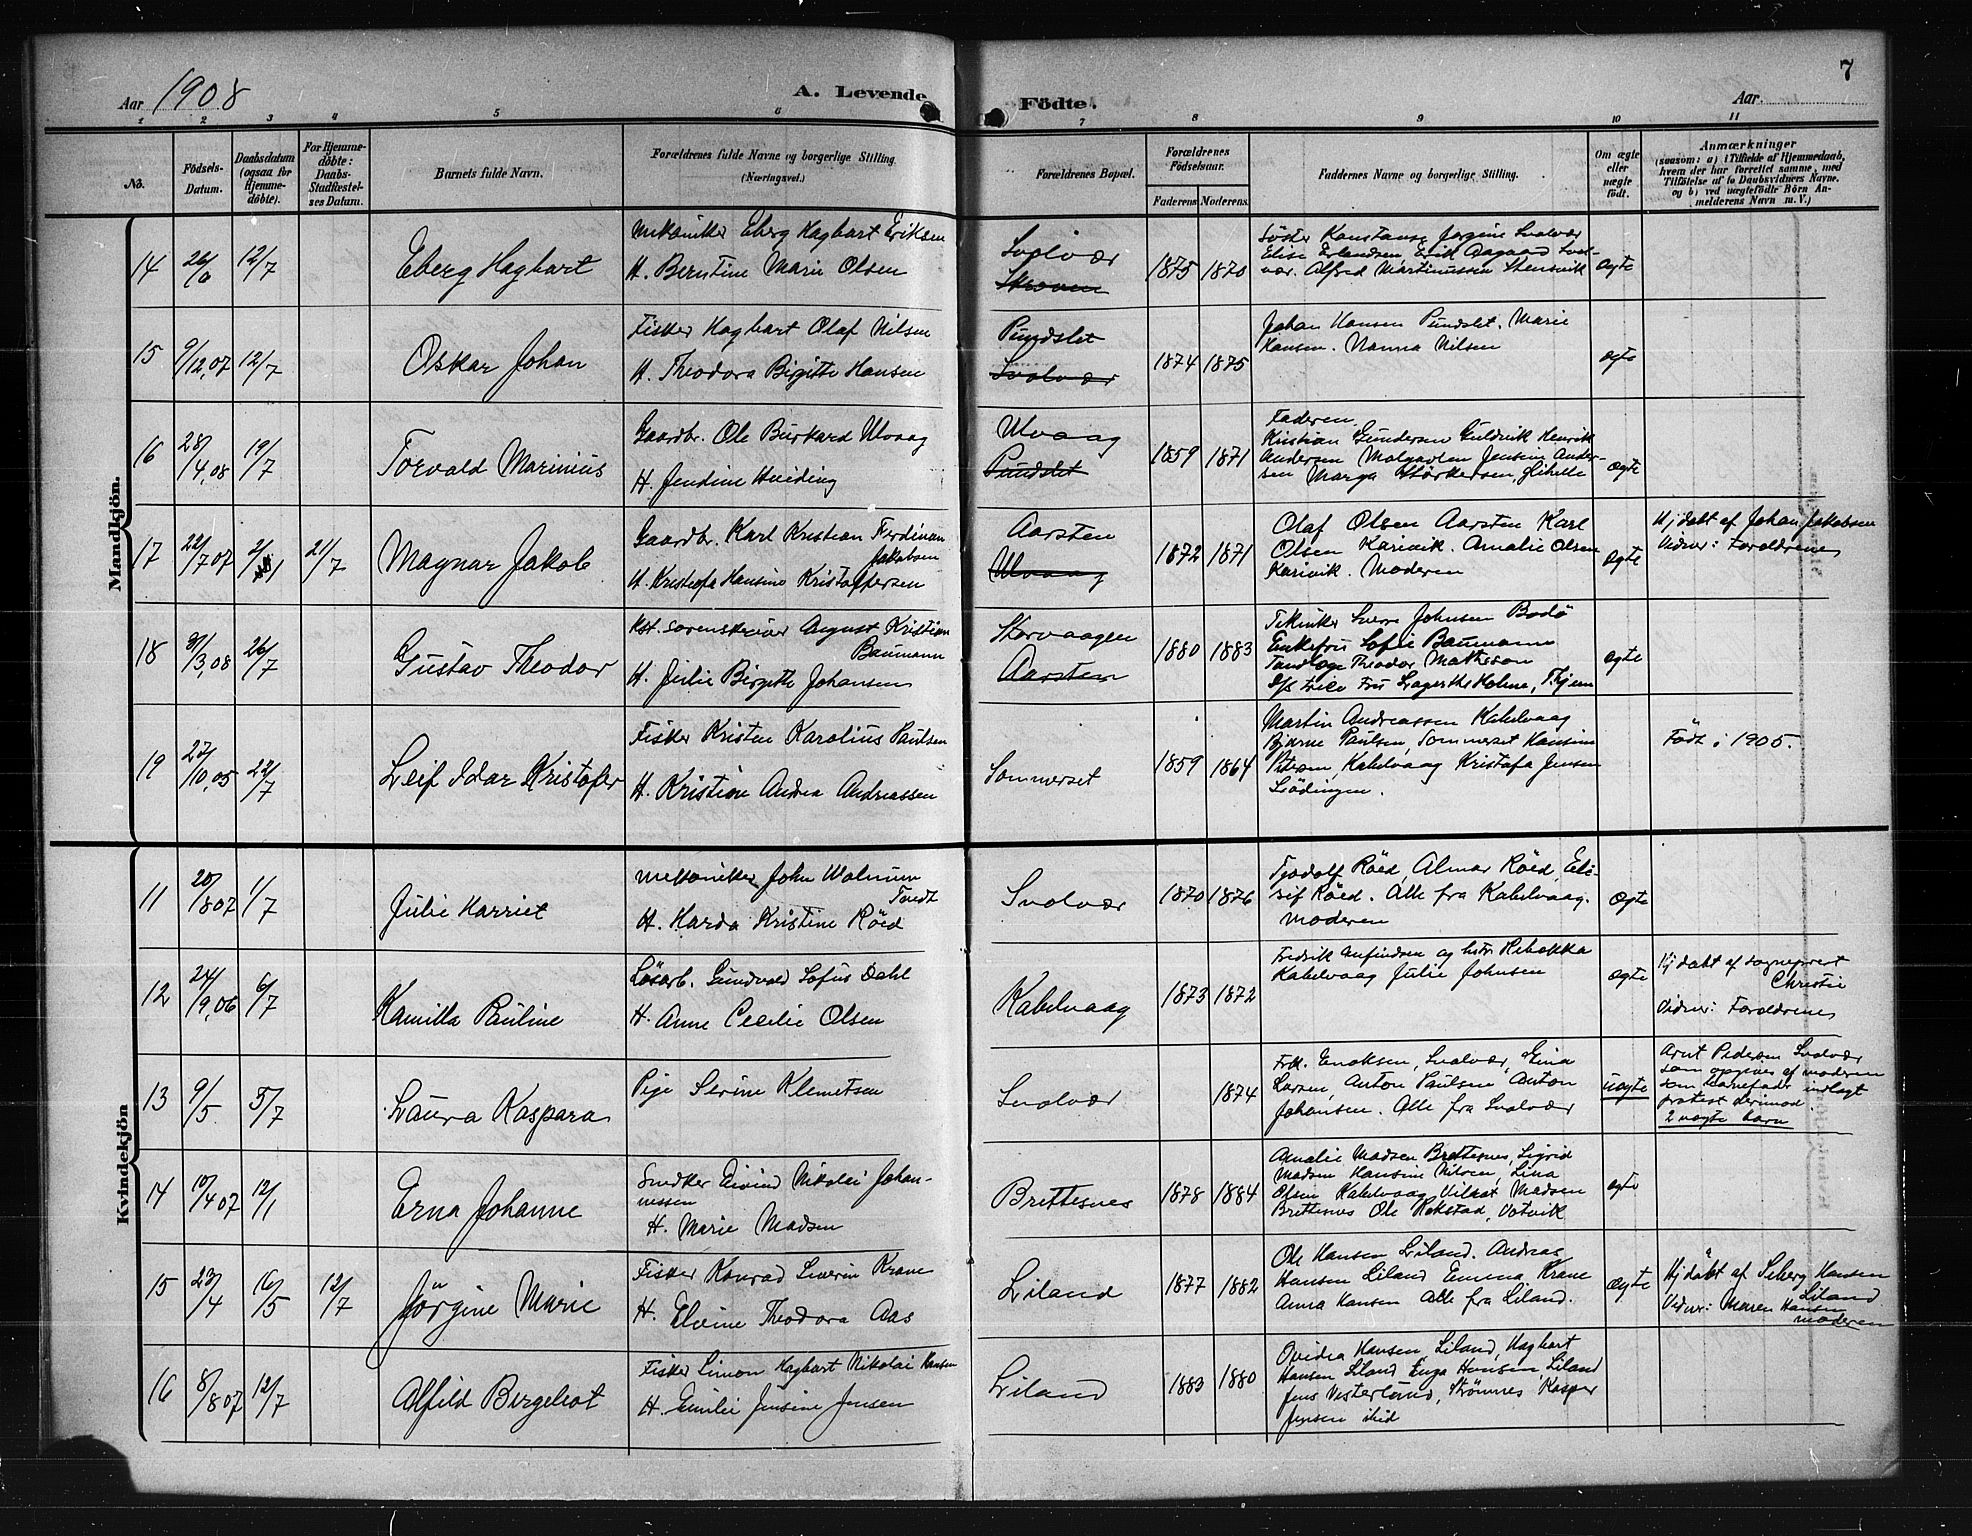 7
Aar 1908
A. Levende
Födte.
Aar
1 2 3 4 5 6 7 8 9 10 11
No.
Födsels-
Datum.
Daabsdatum
(ogsaa for
Hjemme-
döbte).
For Hjemme-
döbte:
Daabs-
Stadfæstel-
ses Datum.
Barnets fulde Navn.
Forældrenes fulde Navne og borgerlige Stilling.
(Næringsvei.)
Forældrenes Bopæl.
Forældrenes
Födselsaar.
Faderens Moderens
Faddernes Navne og borgerlige Stilling.
Om ægte
eller
uægte
födt.
Anmærkninger
(saasom: a) i Tilfælde af Hjemmedaab,
hvem der har forrettet samme, med
Tilföielse af to Daabsvidners Navne.
og b) ved uægtefödte Börn An-
melderens Navn m. V.)
Mandkjön.
14 26/6 12/7
Eberg Hagbart
Mekaniker Eberg Hagbart Eriksen
H. Berntine Marie Olsen
Svolvær
Skroven
1875 1870
Søster Konstanse Jørgine Svolvær
Elise Erlandsen, Erik Aagaard Svol-
vær. Alfred Martinussen Stensvik
ægte
15 9/12,07 12/7
Oskar Johan
Fisker Hagbart Olaf Nilsen
H. Theodora Birgitte Hansen
Pundslet
Svolvær
1874 1875
Johan Hansen Pundslet. Marie
Hansen. Nanna Nilsen
ægte
16 28/4,08 19/7
Torvald Marinius
Gaardbr. Ole Burkard Ulvaag
H. Jendine Hveding
Ulvaag
Pundslet
1859 1871
Faderen.
Kristian Gundersen Guldvik Henrik
Andersen Jensine Ander-
sen Marga Størkersen,
ægte
17 22/7 07 21/7
Magnar Jakob
Gaardbr. Karl Kristian Ferdinan
Jakobsen
H. Kristofa Hansine Kristoffersen
Aarsten
Ulvaag
1872 1871
Olaf Olsen Aarsten Karl
Olsen Karivik. Amalie Olsen
Karivik. Moderen
ægte
Hjdøbt af Johan Jakobsen
Vidner: Forældrenes
18 31/3,08 26/7
Gustav Theodor
Kst. Sorenskriver August Kristian
Baumann
H. Julie Birgitte Johansen
Storvaagen
Aarsten
1880 1883
Tekniker Sverre Johnsen Bodø
Enkefru Sofie Baumann
Tandlæge Theodor Matheson
Fru Lagertha Holme,
ægte
19 27/10,05 22/7
Leif Idar Kristofer
Fisker Kristen Karolius Paulsen
H. Kristine Andrea Andreassen
Sommerset
1859 1864
Martin Andreassen Kabelvaag
Bjarne Paulsen, Sommerset Hansine
Petersen, Kabelvaag Kristofa Jensen
Lødingen.
Født i 1905.
Kvindekjön
11 20/8 07 1/7
Julie Harriet
Mekaniker John Walnum
Tandt
H. Harda Kristine Röed
Svolvær
1870 1876
Tjodolf Röed, Almar Röed Eli-
sif Röed. Alle fra Kabelvaag.
Moderen
Ægte
12 24/9,06 6/7
Kamilla Pauline
Løsarb. Gundvald Sofus Dahl
H. Anne Cecilie Olsen
Kabelvaag
1873 1872
Fredrik Anfindsen og hstr Rebekka
Kabelvaag Julie Johnsen
ægte
Hjdøbt af sogneprest
Christie
Vidner: Forældrenes
13 9/5. 5/7
Laura Kaspara
Pige Serine Klemetsen
Svolvær
1874
Frk. Enoksen, Svolvær, Gina
Larsen, Anton Paulsen Anton
Johansen. Alle fra Svolvær
uægte
Arnt Pedersen Svolvær
som opgives af moderen
som barnefader indlagt
protest derimod.
2 uægte barn
14 10/4 07 12/1
Erna Johanne
Snedker Eivind Nikolai Johan-
nessen
H. Marie Madsen
Brettesnes
1878 1884
Amalie Madsen Brettesnes, Sigrid
Madsen Hansine Nilsen, Lina
Olsen Kabelvaag, Madsen
Brettesnes Ole Rekstad, Votvik
ægte
15 23/4 16/5 12/7
Jörgine Marie
Fisker Konrad Severin Krane
H. Elvine Theodora Aas
Liland
1877 1882
Ole Hansen Liland. Andreas
Hansen Liland Emma Krane
Anna Hansen Alle fra Liland.
Ægte
Hjdøbt af Seberg Hansen
Liland
Vidner: Maren Hansen
moderen
16 8/8 07 12/7
Alfild Bergeliot
Fisker Simon Hagbart Nikolai Hansen
H. Emilie Jensine Jensen
Liland
1883 1880
Ovidia Hansen, Liland, Hagbart
Hansen Liland Inga Hansen Liland
Jens Vesterlund, Strømnes Kasper
Jensen ibid